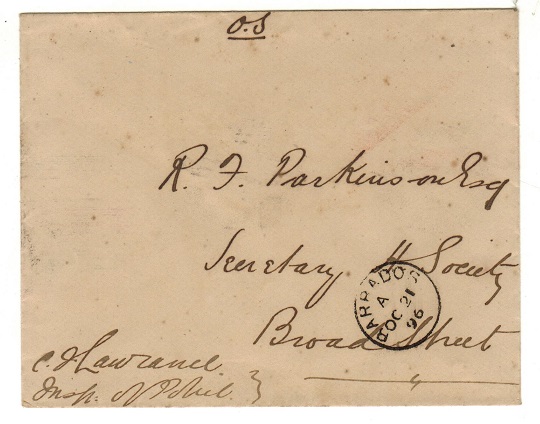 O.S
R. F. Parkinson Esq
Secretary H Society
Broad Street
BARBADOS
A
OC 21
96
Insp. of Police